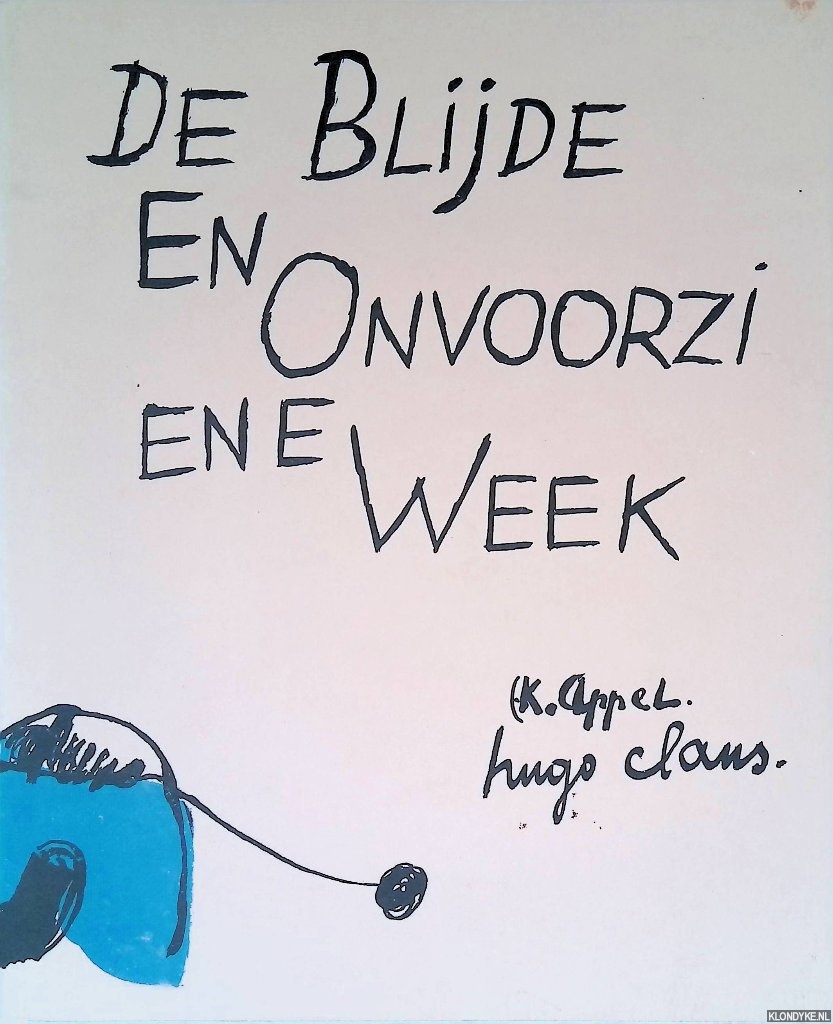 DE BLIJDE
EN
ONVOORZI
ENE
WEEK
K. Appel.
hugo claus.
KLONDYKE.NL